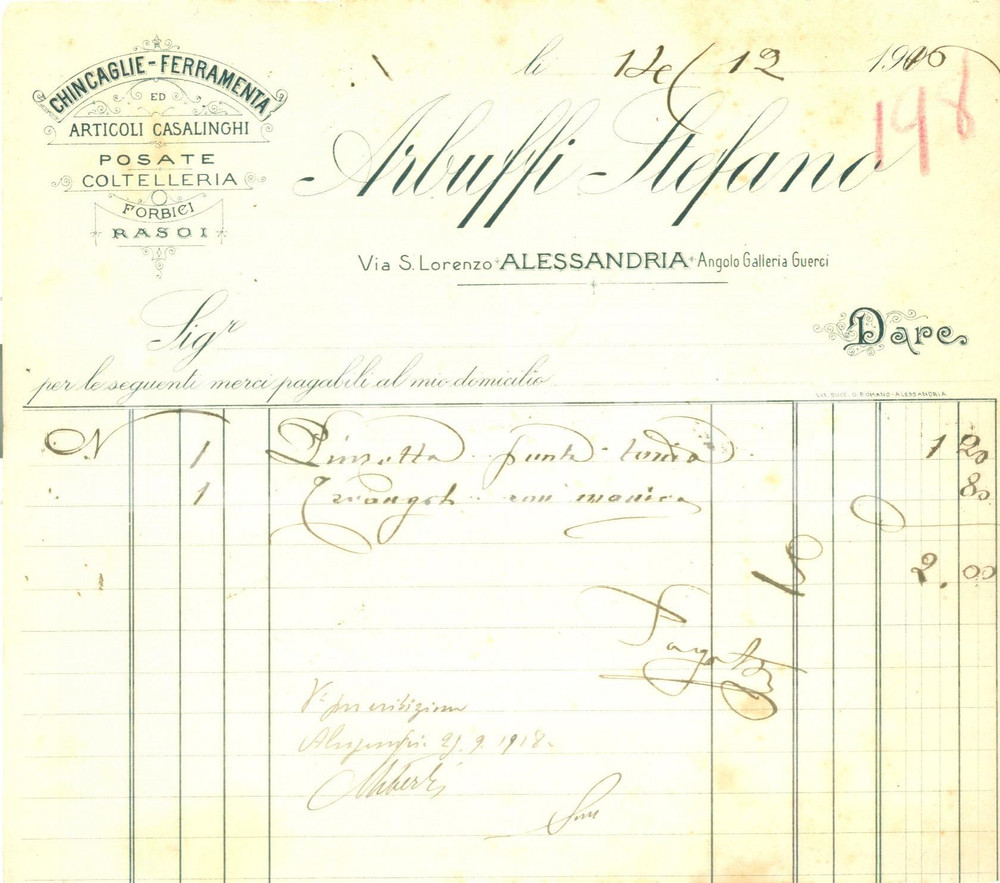 CHINCAGLIE-FERRAMENTA
ED
ARTICOLI CASALINGHI
POSATE
COLTELLERIA
FORBICI
RASOI
li 12 1906
198
Arbuffi Stefano
Via S. Lorenzo ALESSANDRIA Angolo Galleria Guerci
Sigr
Dare
per le seguenti merci pagabili al mio domicilio
N 1 Pinzetta punta tonda 1 20
1 con manico 80
2.00
Pagato
Vo per esibizione
Alessandria 21.9.1918.